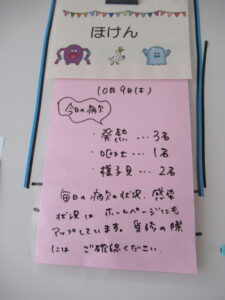 ほけん
10月9日(木)
今日の病欠
・発熱…3名
・嘔吐…1名
・様子見…2名
毎日の病欠の状況、感染
状況は ホームページにも
アップしています。受診の際
には ご確認ください。